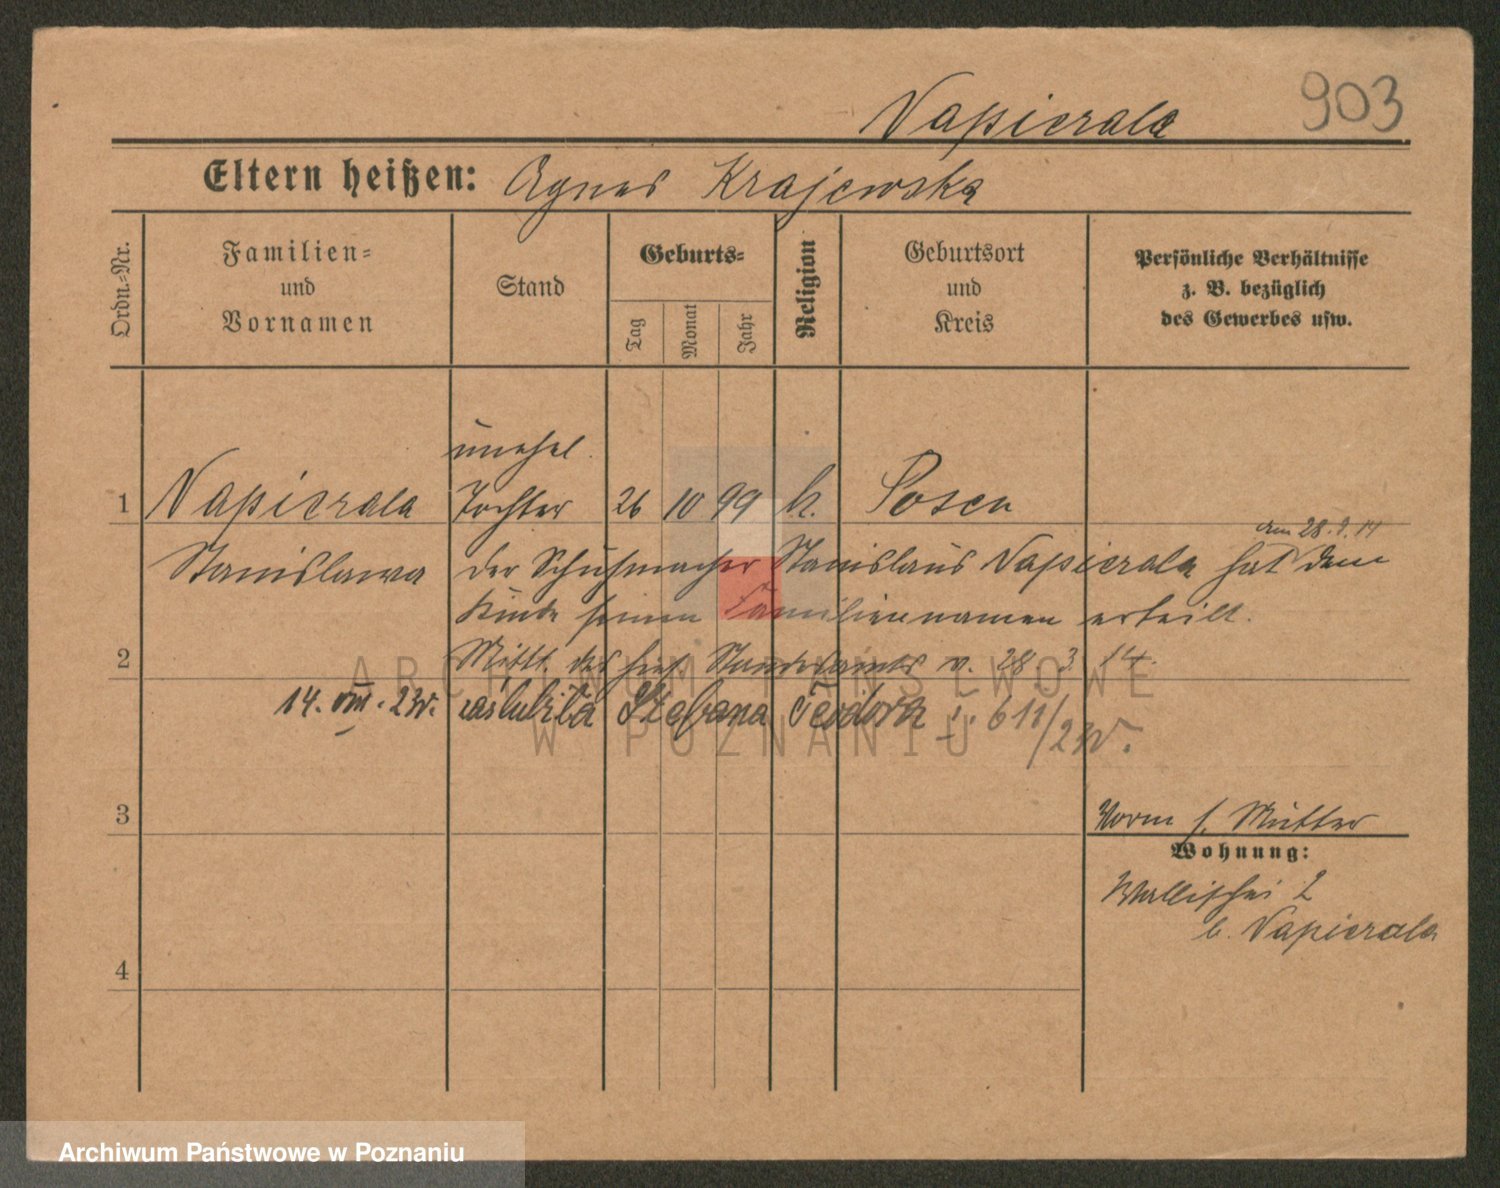 903
Napierala
Eltern heißen: Agnes Krajewska
Ordn.-Nr.
Familien-
und
Vornamen
Stand
Geburts-
Tag
Monat
Jahr
Religion
Geburtsort
und
Kreis
Persönliche Verhältnisse
z. B. bezüglich
des Gewerbes usw.
unehel.
1 Napierala Tochter 26 10 99 k. Posen
am 28.3.14
Stanislawa der Schuhmacher Stanislaus Napierala hat dem
Kinde seinen Familiennamen erteilt.
2 Mittl. des hies. Standesamts v. 28 3 14.
14. VIII. 23r. zaślubiła Teodora
3
Vorm f. Mutter
Wohnung:
Wallischei 2
b. Napierala
4
ARCHIWUM PAŃSTWOWE
W POZNANIU
Archiwum Państwowe w Poznaniu